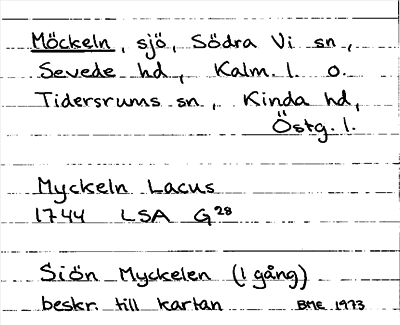 Möckeln, sjö, Södra Vi sn,
Sevede hd, Kalm. l. o.
Tidersrums sn, Kinda hd,
Östg. l.
Myckeln Lacus
1744 LSA G28
Siön Myckelen (1 gång)
beskr. till kartan BME 1973